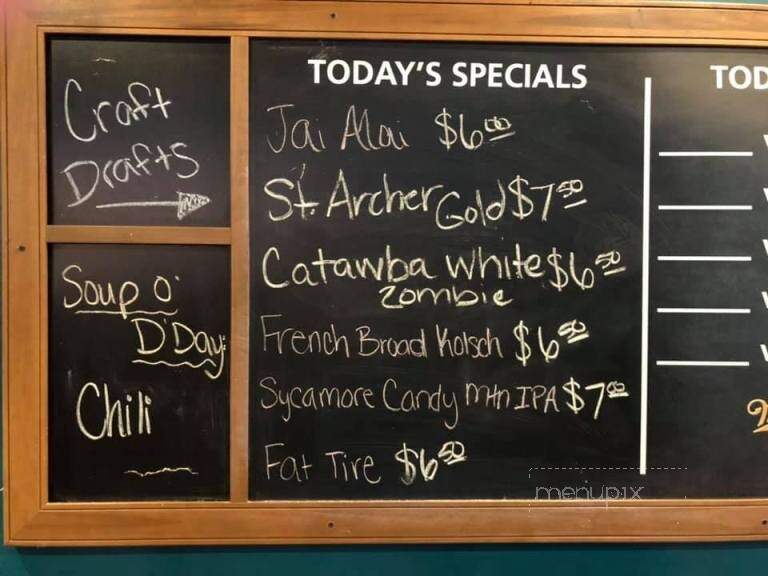 Craft
Drafts
Soup O'
D'Day:
Chili
TODAY'S SPECIALS
Jai Alai $6.00
St. Archer Gold $7.50
Catawba White $6.50
Zombie
French Broad Kolsch $6.50
Sycamore Candy Mtn IPA $7.00
Fat Tire $6.50
TOD
menupix